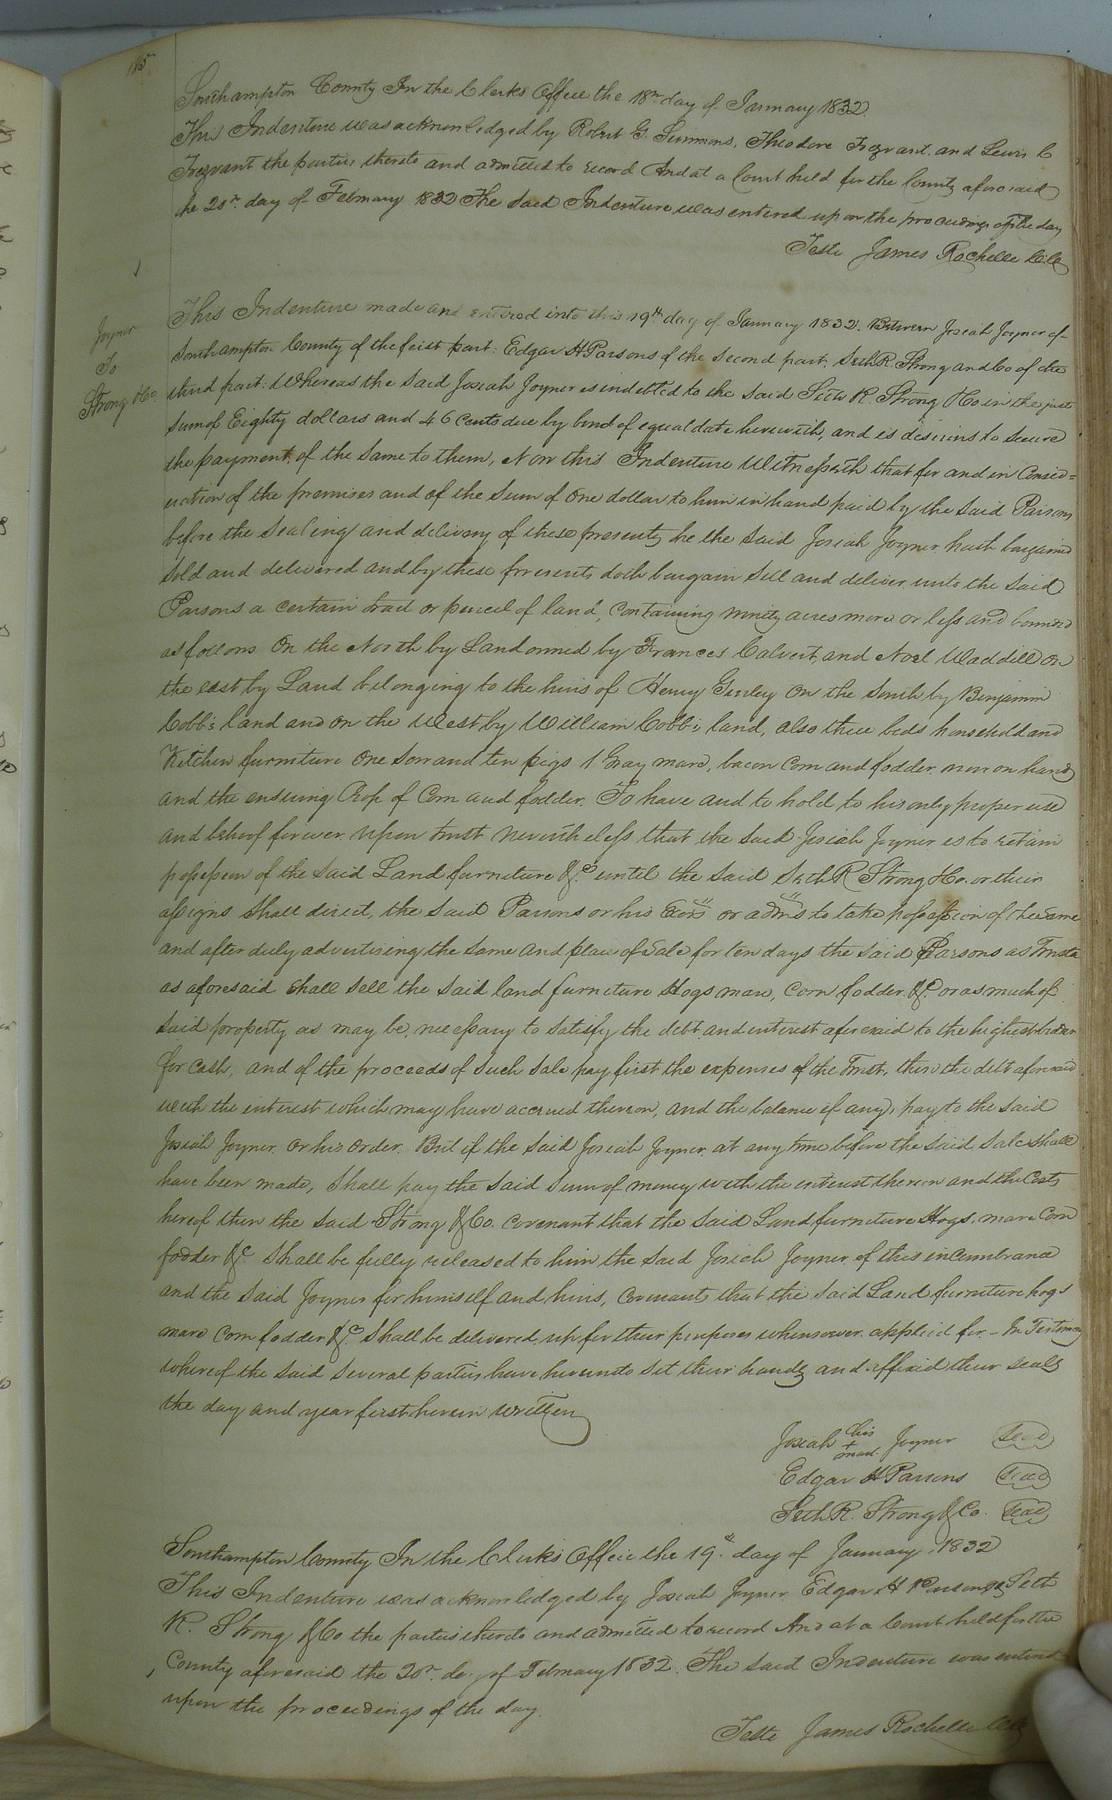 Southampton County In the Clerks Office the 18th day of January 1832
This Indenture was acknowledged by Robert G. Simmons, Theodore Trezvant, and Lewis C
Trezvant the parties thereto and admitted to record And at a Court held for the County aforesaid
he 20th day of February 1832 The said Indenture was entered upon the proceedings of the day
Teste James Rochelle ClC
Joyner
To
Strong &Co.
This Indenture made and entered into this 19th day of January 1832. Between Josiah Joyner of
Southampton County of the first part. Edgar H Parsons of the second part. Seth R. Strong and Co of the
third part: Whereas the said Josiah Joyner is indebted to the said Seth R. Strong &Co in the just
sum of Eighty dollars and 46 Cents due by bond of equal date herewith, and is desirous to secure
the payment of the same to them, Now this Indenture Witnesseth that for and in Consid=
eration of the premises and of the sum of One dollar to him in hand paid by the said Parsons
before the sealing and delivery of these presents, he the said Josiah Joyner hath bargained
sold and delivered and by these presents doth bargain sell and deliver unto the said
Parsons a certain tract or parcel of land, Containing ninety acres more or less and bounded
as follows On the North by Land owned by Frances Calvert and Noel Waddill on
the east by Land belonging to the heirs of Henry Gurley On the South by Benjamin
Cobb's land and on the West by William Cobb's land, also three beds household and
Kitchen furniture One sow and ten pigs 1 Gray mare, bacon Corn and fodder now on hand
and the ensuing Crop of Corn and fodder. To have and to hold to his only proper use
and behoof forever upon trust nevertheless that the said Josiah Joyner is to retain
possession of the said Land furniture &c. until the said Seth R Strong &Co. or their
assigns shall direct, the said Parsons or his Exors or adms to take possession of the same
and after duly advertising the same and place of sale for ten days the said Parsons as Trustee
as aforesaid shall sell the said land furniture Hogs mare, Corn fodder &c. or as much of
said property as may be necessary to satisfy the debt and interest aforesaid to the highest bidder
for Cash, and of the proceeds of such sale pay first the expenses of the Trust, then the debt aforesaid
with the interest which may have accrued thereon, and the balance if any, pay to the said
Josiah Joyner or his order. But if the said Josiah Joyner at any time before the said sale shall
have been made, shall pay the said sum of money with the interest thereon and the Costs
hereof then the said Strong &Co. Covenant that the said Land furniture Hogs. mare Corn
fodder &c shall be fully released to him the said Josiah Joyner of this incumbrance
and the said Joyner for himself and heirs, Covenants that the said Land furniture hogs
mare Corn fodder &c. shall be delivered up for their purposes whensoever applied for. - In Testimony
whereof the said several parties have hereunto set their hands and affixed their seals
the day and year first herein written
his
Josiah + Joyner Seal
mark
Edgar H Parsons Seal
Seth R. Strong &Co. Seal
Southampton County In the Clerks Office the 19th day of January 1832
This Indenture was acknowledged by Josiah Joyner Edgar H Parsons & Seth
R. Strong &Co the parties thereto and admitted to record And at a Court held for the
County aforesaid the 20th day of February 1832. The said Indenture was entered
upon the proceedings of the day.
Teste James Rochelle ClC